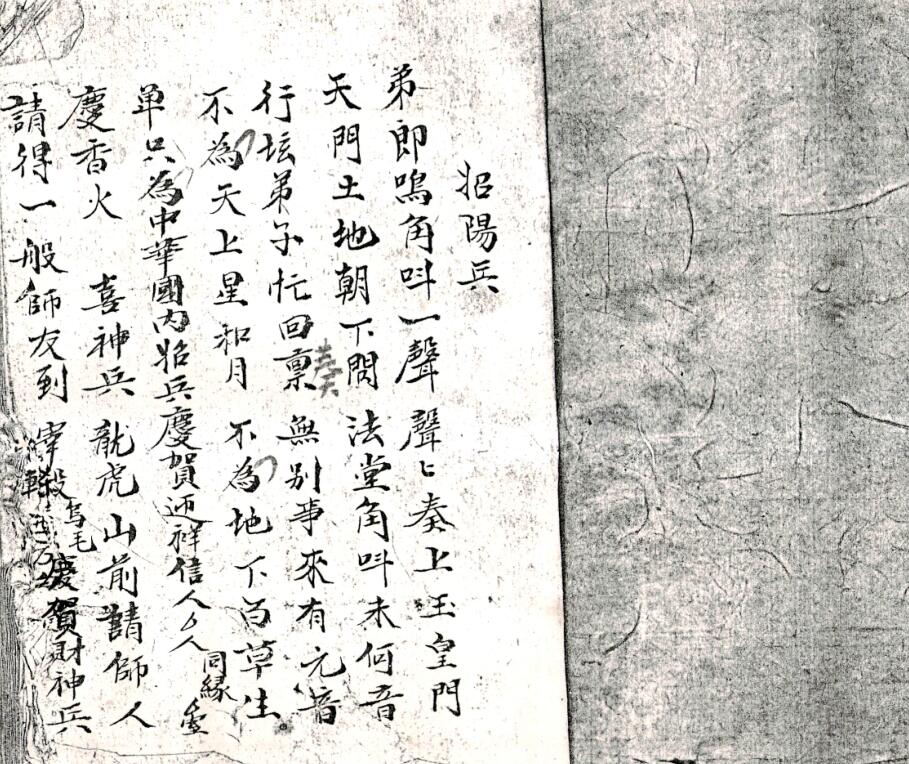 招陽兵
弟郎鳴角叫一聲 聲〻奏上玉皇門
天門土地朝下問 法堂角叫未何音
行坛弟子忙回禀奏 無别事來有元音
不為天上星和月 不為地下百草生
单只為中華國内招兵慶賀迊祥信人ム人同緣
慶香火 喜神兵 龍虎山前請師人
請得一般師友到 宰殺烏毛 慶賀財神兵